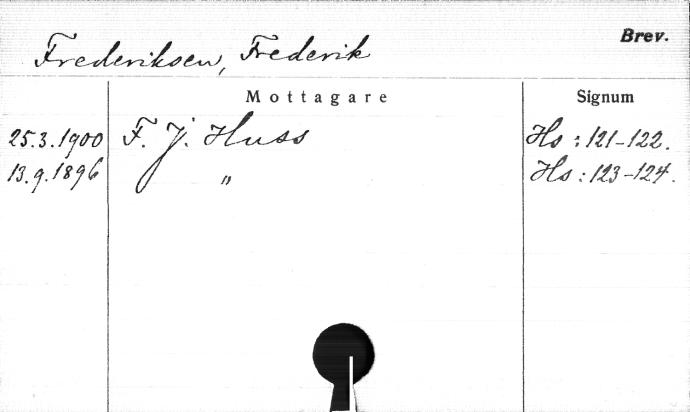 Frederiksen, Frederik Brev.
Mottagare Signum
25.3.1900 F. J. Huss Hs : 121-122.
13.9.1896 " Hs : 123-124.